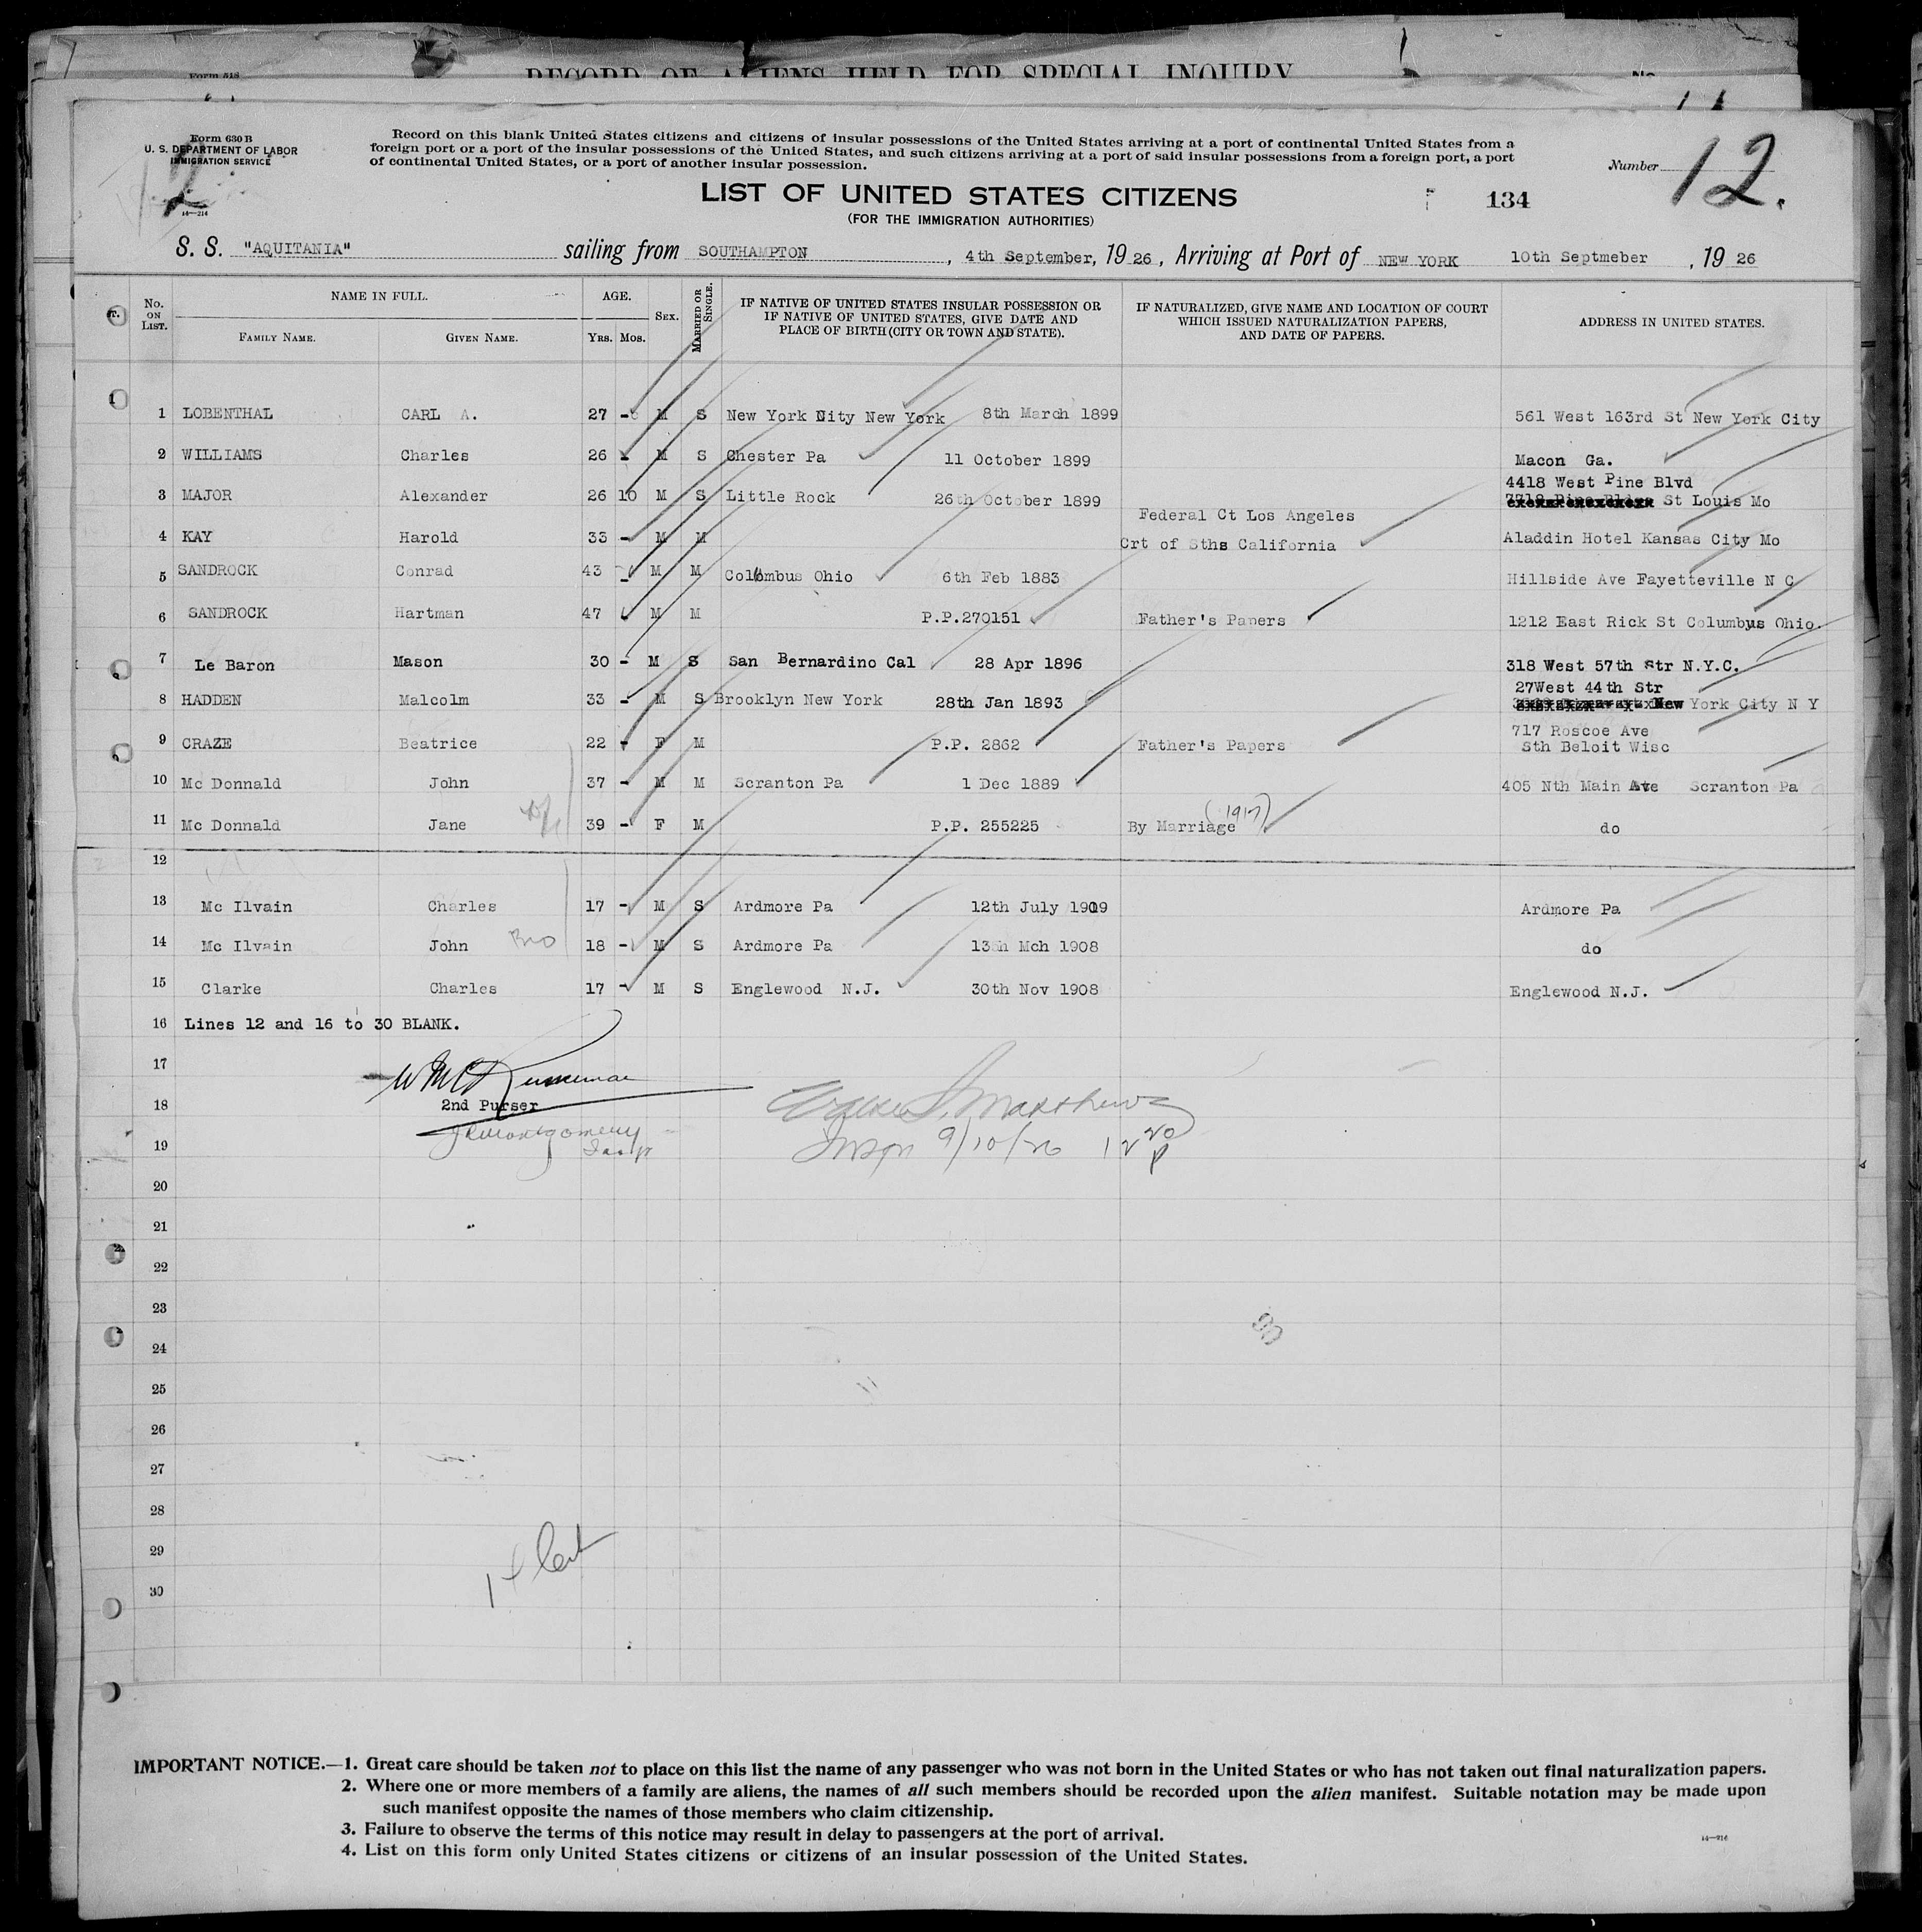 Form 518
RECORD OF ALIENS HELD FOR SPECIAL INQUIRY
No
Form 630 B
U. S. DEPARTMENT OF LABOR
IMMIGRATION SERVICE
2
14—214
Record on this blank United States citizens and citizens of insular possessions of the United States arriving at a port of continental United States from a
foreign port or a port of the insular possessions of the United States, and such citizens arriving at a port of said insular possessions from a foreign port, a port
of continental United States, or a port of another insular possession.
Number 12.
LIST OF UNITED STATES CITIZENS
134
(FOR THE IMMIGRATION AUTHORITIES)
S. S. "AQUITANIA" sailing from SOUTHAMPTON, 4th September, 1926, Arriving at Port of NEW YORK 10th Septmeber, 1926
No. ON LIST. NAME IN FULL. FAMILY NAME. GIVEN NAME. AGE. YRS. MOS. SEX. MARRIED OR SINGLE. IF NATIVE OF UNITED STATES INSULAR POSSESSION OR IF NATIVE OF UNITED STATES, GIVE DATE AND PLACE OF BIRTH (CITY OR TOWN AND STATE). IF NATURALIZED, GIVE NAME AND LOCATION OF COURT WHICH ISSUED NATURALIZATION PAPERS, AND DATE OF PAPERS. ADDRESS IN UNITED STATES.
1 LOBENTHAL CARL A. 27 - M S New York City New York 8th March 1899 561 West 163rd St New York City
2 WILLIAMS Charles 26 - M S Chester Pa 11 October 1899 Macon Ga.
3 MAJOR Alexander 26 10 M S Little Rock 26th October 1899 4418 West Pine Blvd St Louis Mo
4 KAY Harold 33 - M M Federal Ct Los Angeles Crt of Sths California Aladdin Hotel Kansas City Mo
5 SANDROCK Conrad 43 - M M Columbus Ohio 6th Feb 1883 Hillside Ave Fayetteville N C
6 SANDROCK Hartman 47 M M P.P.270151 Father's Papers 1212 East Rick St Columbus Ohio.
7 Le Baron Mason 30 - M S San Bernardino Cal 28 Apr 1896 318 West 57th Str N.Y.C.
8 HADDEN Malcolm 33 - M S Brooklyn New York 28th Jan 1893 27West 44th Str New York City N Y
9 CRAZE Beatrice 22 - F M P.P. 2862 Father's Papers 717 Roscoe Ave Sth Beloit Wisc
10 Mc Donnald John 37 - M M Scranton Pa 1 Dec 1889 405 Nth Main Ave Scranton Pa
11 Mc Donnald Jane 39 - F M P.P. 255225 By Marriage (1917) do
12
13 Mc Ilvain Charles 17 - M S Ardmore Pa 12th July 1909 Ardmore Pa
14 Mc Ilvain John Bro 18 - M S Ardmore Pa 13th Mch 1908 do
15 Clarke Charles 17 - M S Englewood N.J. 30th Nov 1908 Englewood N.J.
16 Lines 12 and 16 to 30 BLANK.
17
18 2nd Purser
19 Insp 9/10/26 12 20 P
20
21
22
23
24
25
26
27
28
29
30
IMPORTANT NOTICE.—1. Great care should be taken not to place on this list the name of any passenger who was not born in the United States or who has not taken out final naturalization papers.
2. Where one or more members of a family are aliens, the names of all such members should be recorded upon the alien manifest. Suitable notation may be made upon
such manifest opposite the names of those members who claim citizenship.
3. Failure to observe the terms of this notice may result in delay to passengers at the port of arrival.
4. List on this form only United States citizens or citizens of an insular possession of the United States.